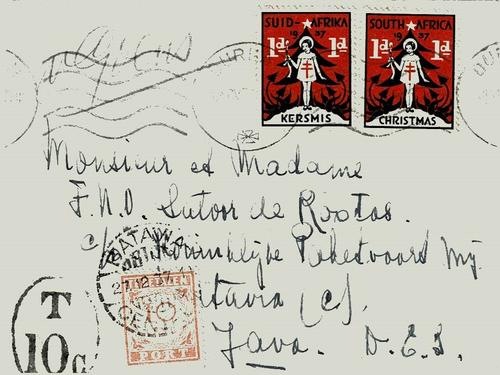 SUID-AFRIKA
1937
1d. 1d
KERSMIS
SOUTH AFRICA
1937
1d. 1d
CHRISTMAS
Monsieur et Madame
F.N.D. Sutor de Rootas.
c/o Koninklijke Paketvaart Mij
Batavia (C).
Java. D.E.I.
BATAVIA
CENTRUM
27.12.37
10
CENT
PORT
T
10c